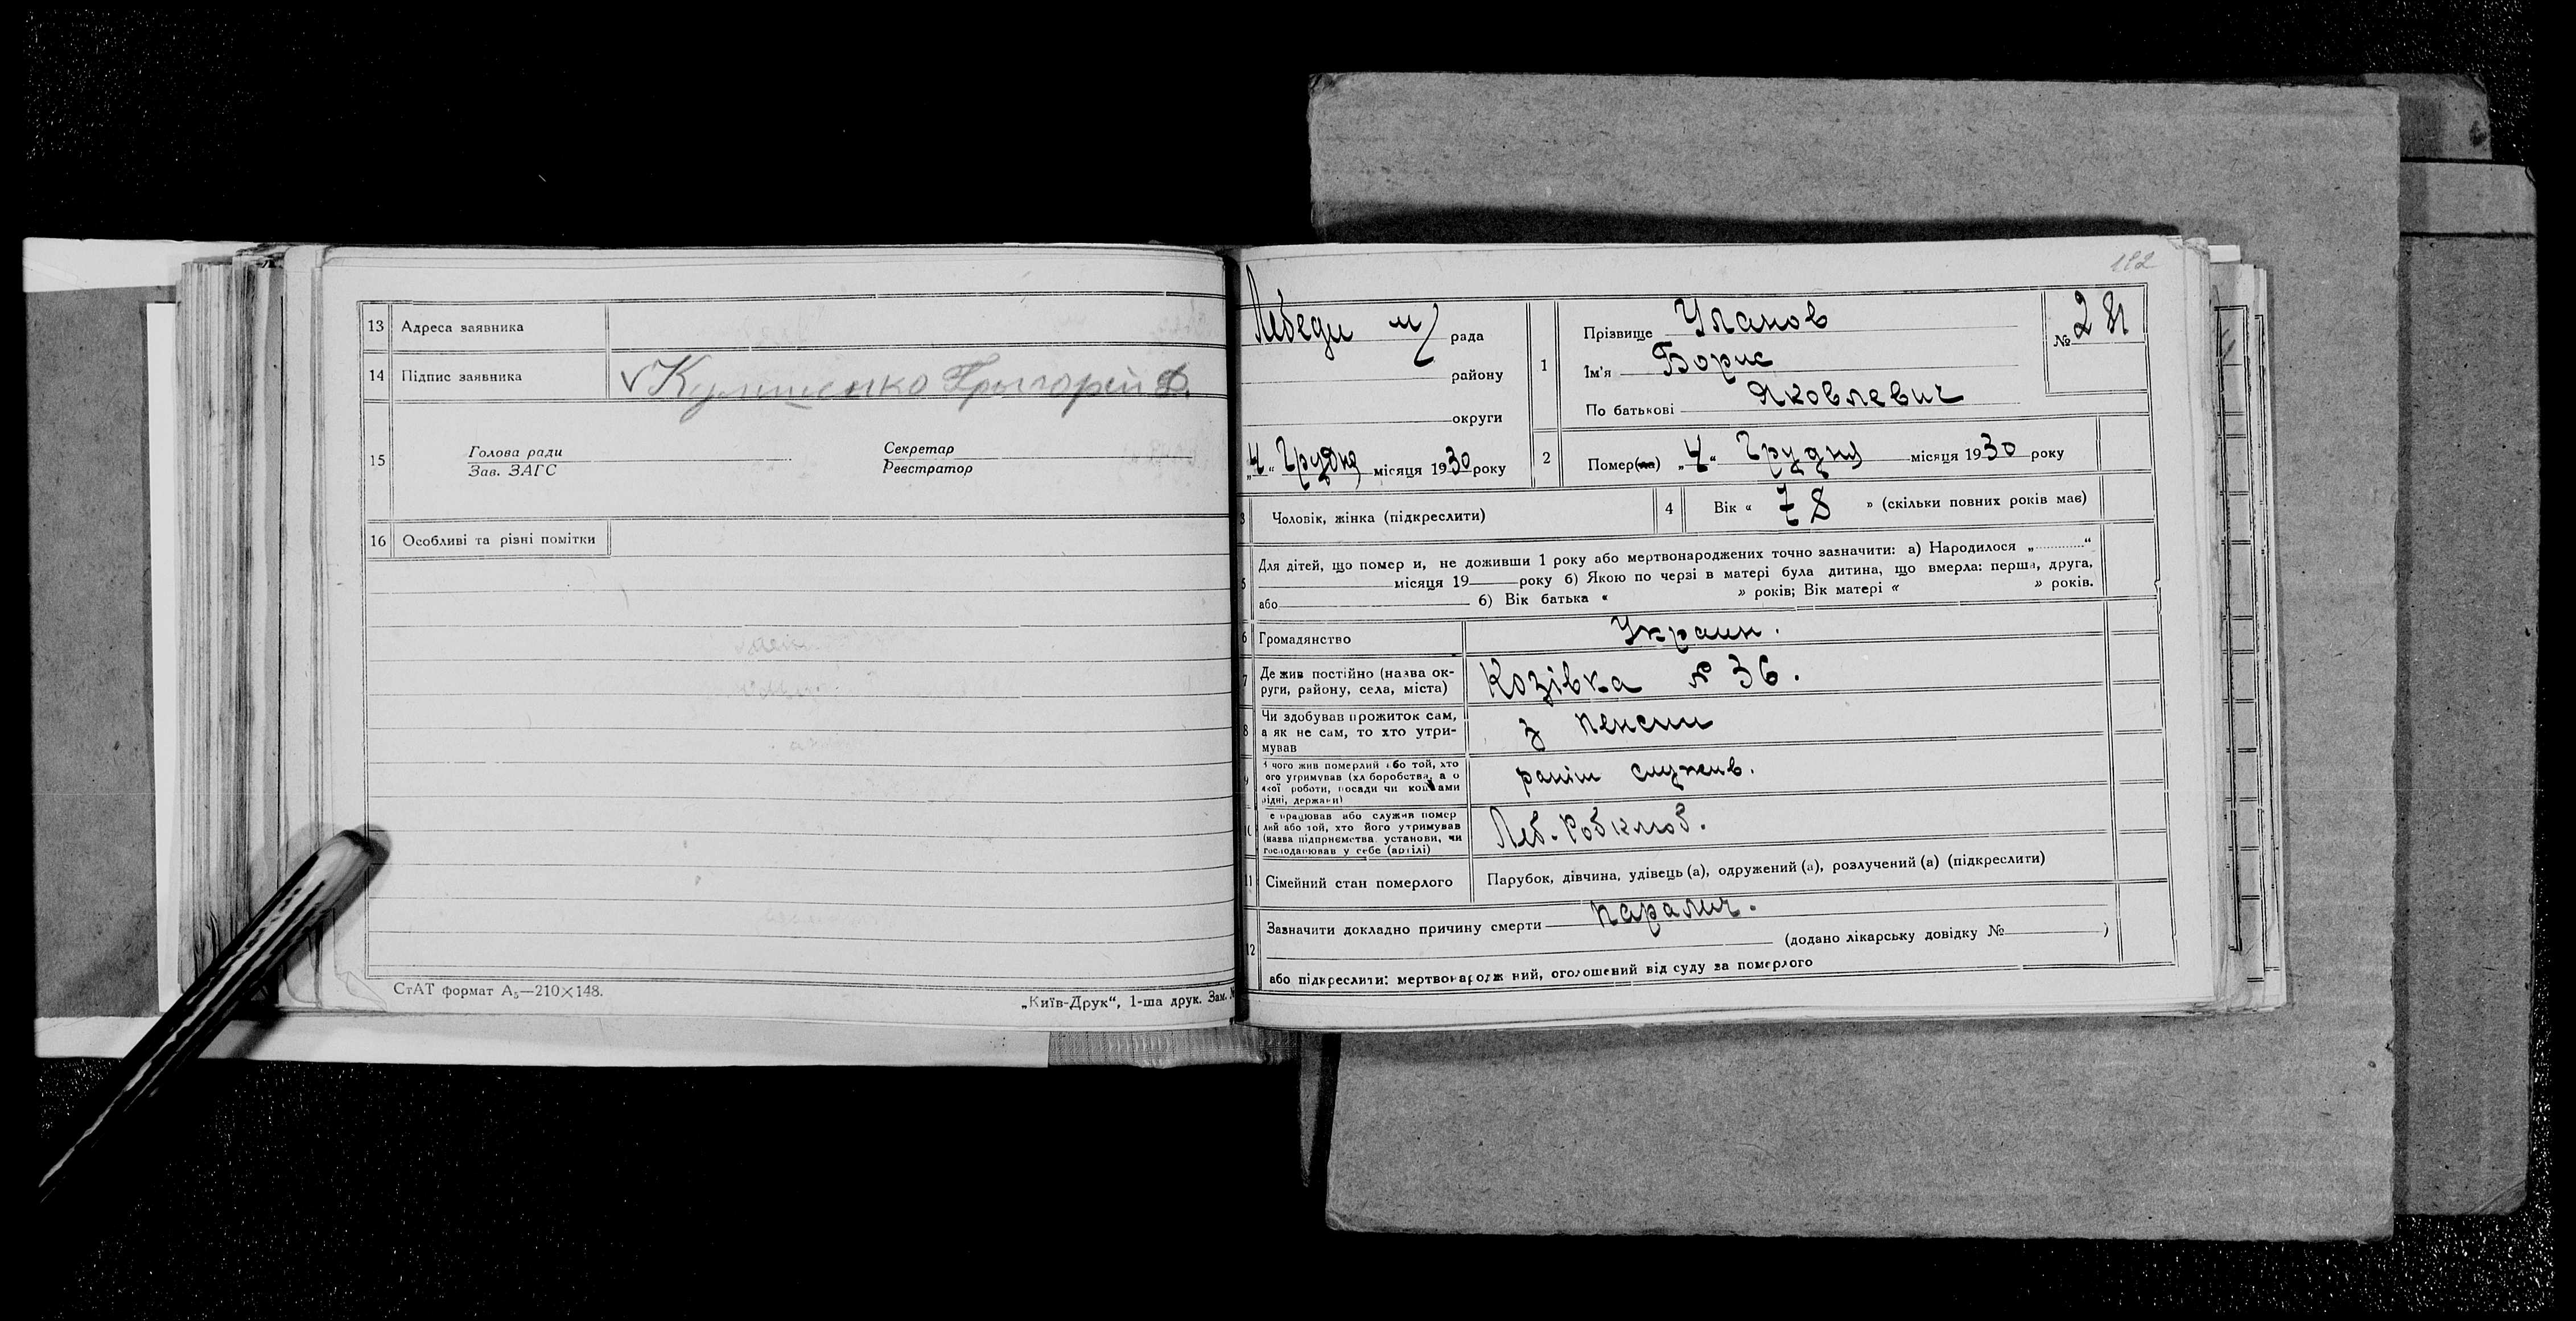 13 Адреса заявника
14 Підпис заявника
15 Голова ради
Зав. ЗАГС
Секретар
Реєстратор
16 Особливі та різні помітки
СтАТ формат А₅—210×148.
„Київ-Друк“, 1-ша друк. Зам. №
Лебеди м/ рада
району
округи
„4“ Грудня місяця 1930 року
1 Прізвище Уланов
Ім'я Борис
По батькові Яковлевич
№
2 Помер(ла) „4“ Грудня місяця 1930 року
3 Чоловік, жінка (підкреслити)
4 Вік « 78 » (скільки повних років має)
5 Для дітей, що помер и, не доживши 1 року або мертвонароджених точно зазначити: а) Народилося „ “
місяця 19 року б) Якою по черзі в матері була дитина, що вмерла: перша, друга,
або б) Вік батька « » років; Вік матері « » років.
6 Громадянство Украин.
7 Де жив постійно (назва ок-
руги, району, села, міста) Козівка № 36.
8 Чи здобував прожиток сам,
а як не сам, то хто утри-
мував з пенсии
9 З чого жив померлий або той, хто
ого утримував (хл боробства, а о
якої роботи, посади чи коштами
рідні, держави) раніш служив.
10 е працював або служив помер
лий або той, хто його утримував
(назва підприємства установи, чи
господарював у себе (артілі) Леб. Робклюб.
11 Сімейний стан померлого Парубок, дівчина, удівець (а), одружений (а), розлучений (а) (підкреслити)
12 Зазначити докладно причину смерти паралич.
(додано лікарську довідку № )
або підкреслити: мертвонародж ний, оголошений від суду за померлого